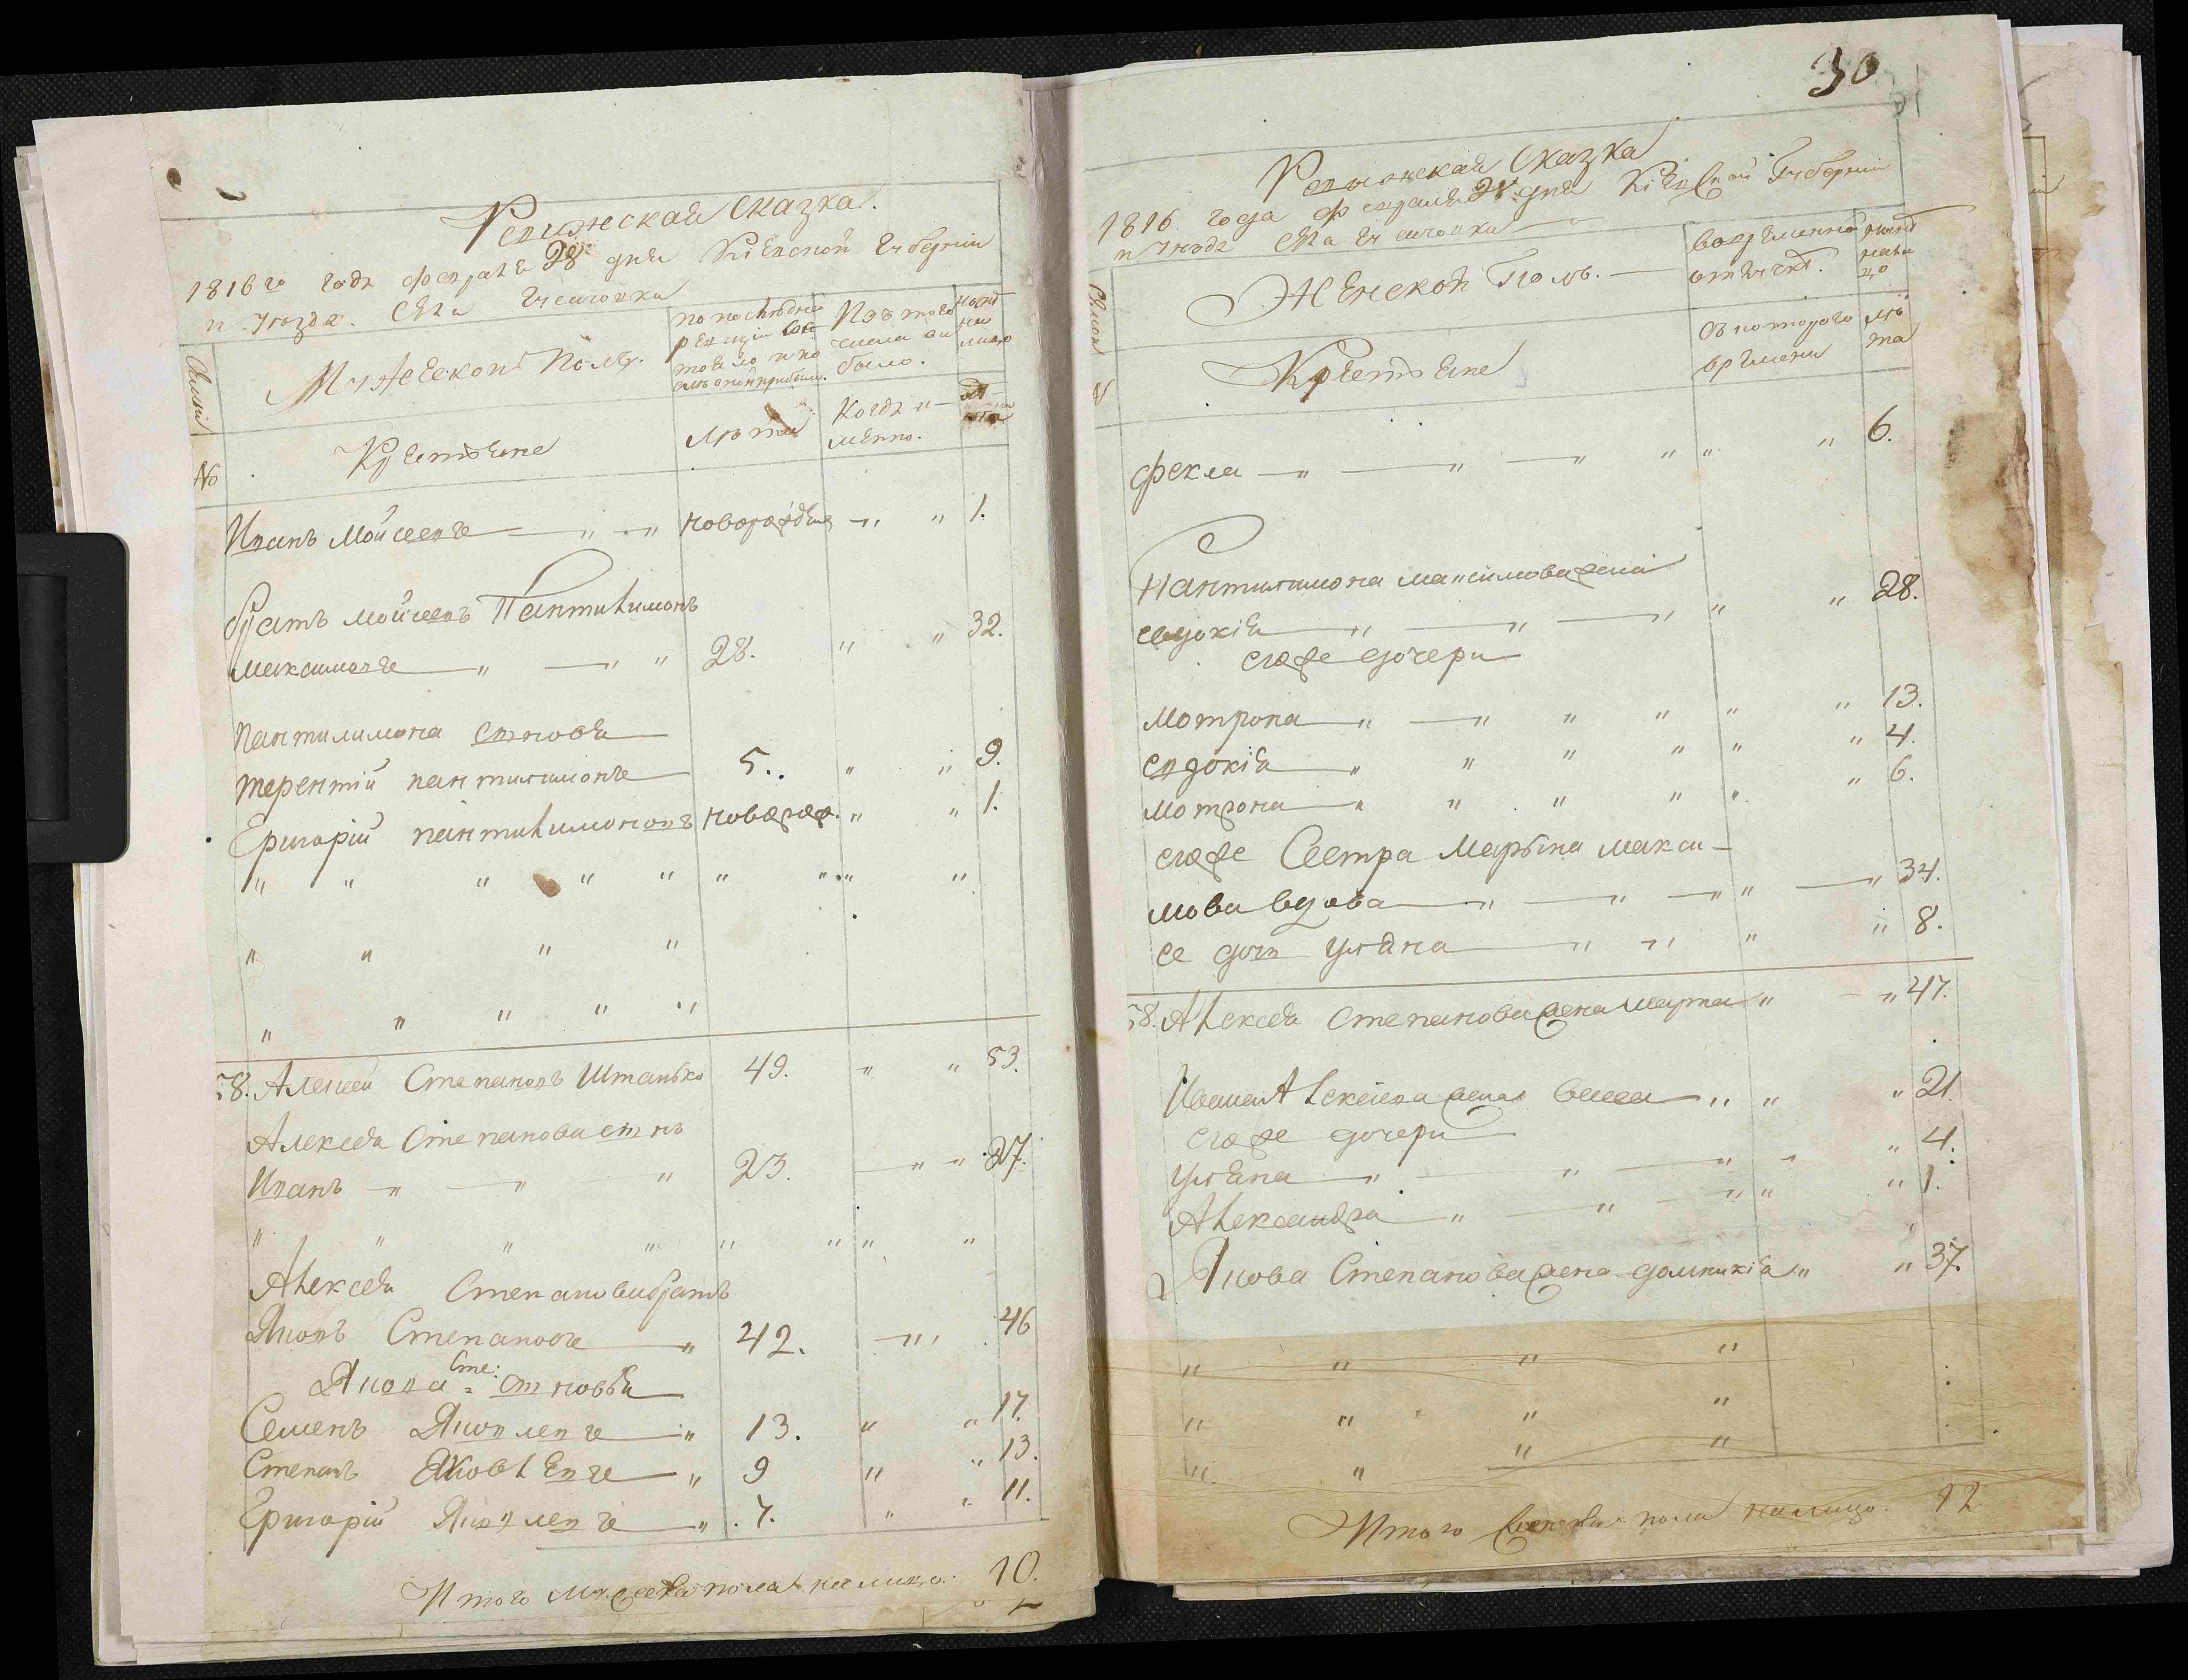 Ревижская сказка.
1816го года февраля 28 дня Кіевской Губерніи
и уезда. Села Гусачовки
Мужеской полъ.
по последней ревизіи состояло и после оной прибыло.
Изъ того числа выбыло.
ныне на лицо
№
Крестьяне
Лѣта
Когда именно.
Лѣта
Иванъ Мойсеевъ — " — " новорожденъ — " " 1.
Братъ Мойсеевъ Пантилимонъ
Максимовъ — " — " " 28. " " 32.
Пантилимона сыновья
Терентій Пантилимоновъ 5. " " 9.
Григорій Пантилимоновъ новорож. " " 1.
58. Алексей Степановъ Штанько 49. " " 53.
Алексея Степанова сынъ
Иванъ — " — " " 23. — " " 27.
Алексея Степанова братъ
Яковъ Степановъ — " 42. — " 46
Якова Сте: сыновья
Семенъ Яковлевъ — " 13. " " 17.
Степанъ Яковлевъ — " 9 " " 13.
Григорій Яковлевъ — " 7. " " 11.
Итого мужеска пола налицо. 10.
30
Ревижская Сказка
1816 года февраля 28 дня Кіевской Губерніи
и уезда Села Гусачовки
Женской Полъ.
во временной отлучкѣ.
ныне на лицо
№
Крестьяне
Съ котораго времени
лѣта
Фекла — " — " — " " " " 6.
Пантилимона Максимова жена
Евдокія — " — " — " " " 28.
его же дочери
Мотрона — " — " " " " " 13.
Евдокія — " " " " " " 4.
Мотрона — " " " " " " 6.
его же Сестра Марьяна Макси-
мова вдова — " — " — " " — " 34.
ее дочь Уляна — " " " " 8.
58. Алексея Степанова жена Марта " — " 47.
Ивана Алексеева жена " " " 21.
его же дочери
Уляна — " — " — " " " 4.
Александра — " — " — " " " 1.
Якова Степанова жена Домникія " " 37.
Итого женска пола налицо. 12.